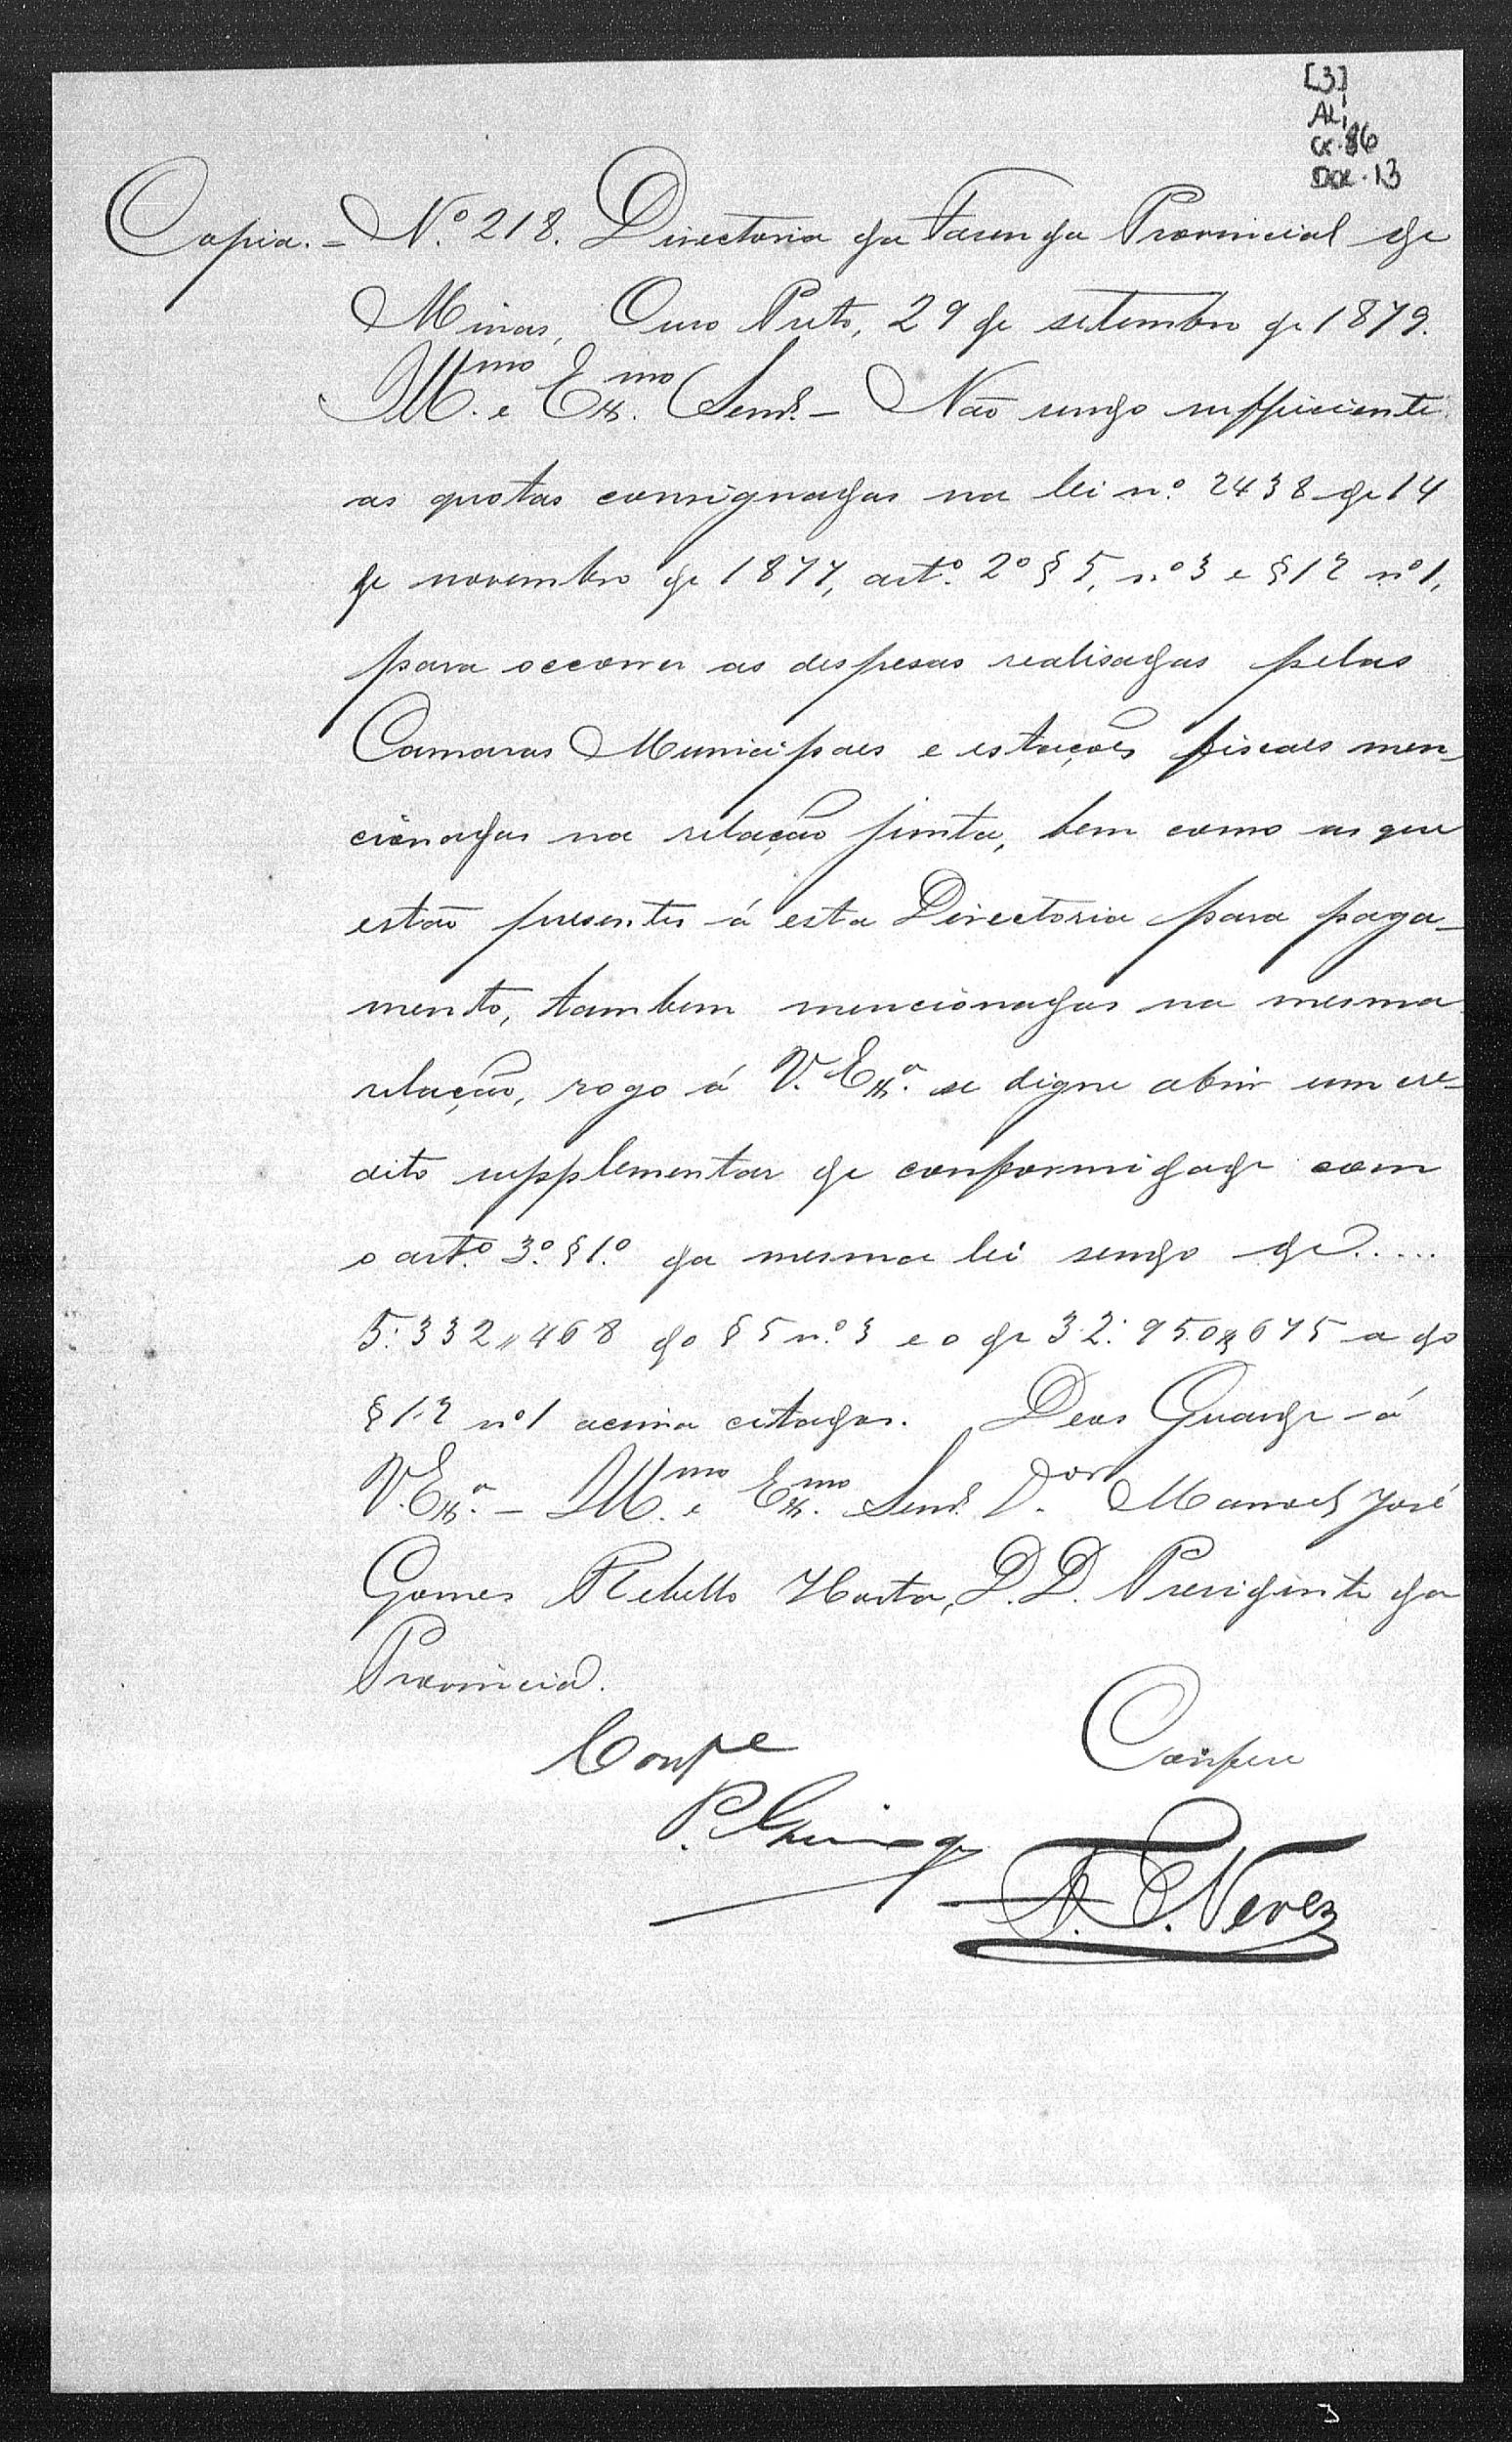 [3]
AL
Cx. 86
Doc. 13
Copia. – N.º 218. Directoria da Fasenda Provincial de
Minas, Ouro Preto, 29 de setembro de 1879.
Ill.mo e Ex.mo Senr. – Não sendo sufficiente
as quotas consignadas na lei n.º 2438 de 14
de novembro de 1877, art.º 2º § 5, n.º 3 e § 12 nº 1,
para occorrer as despesas realisadas pelas
Camaras Municipaes e estações fiscaes men-
cionadas na relação junta, bem como as que
estão presentes á esta Directoria para paga-
mento, tambem mencionadas na mesma
relação, rogo á V. Ex.ª se digne abrir um cre-
dito supplementar de conformidade com
o art.º 3.º § 1.º da mesma lei sendo de.....
5:332,,468 do § 5 n.º 3 e o de 32:950$675 a do
§ 12 nº 1 acima citados. Deos Guarde á
V. Ex.ª – Ill.mo e Ex.mo Senr. D.or Manoel José
Gomes Rebello Horta, D.D. Presidente da
Provincia.
Confe
Confere
P.
A. C. Neves
3